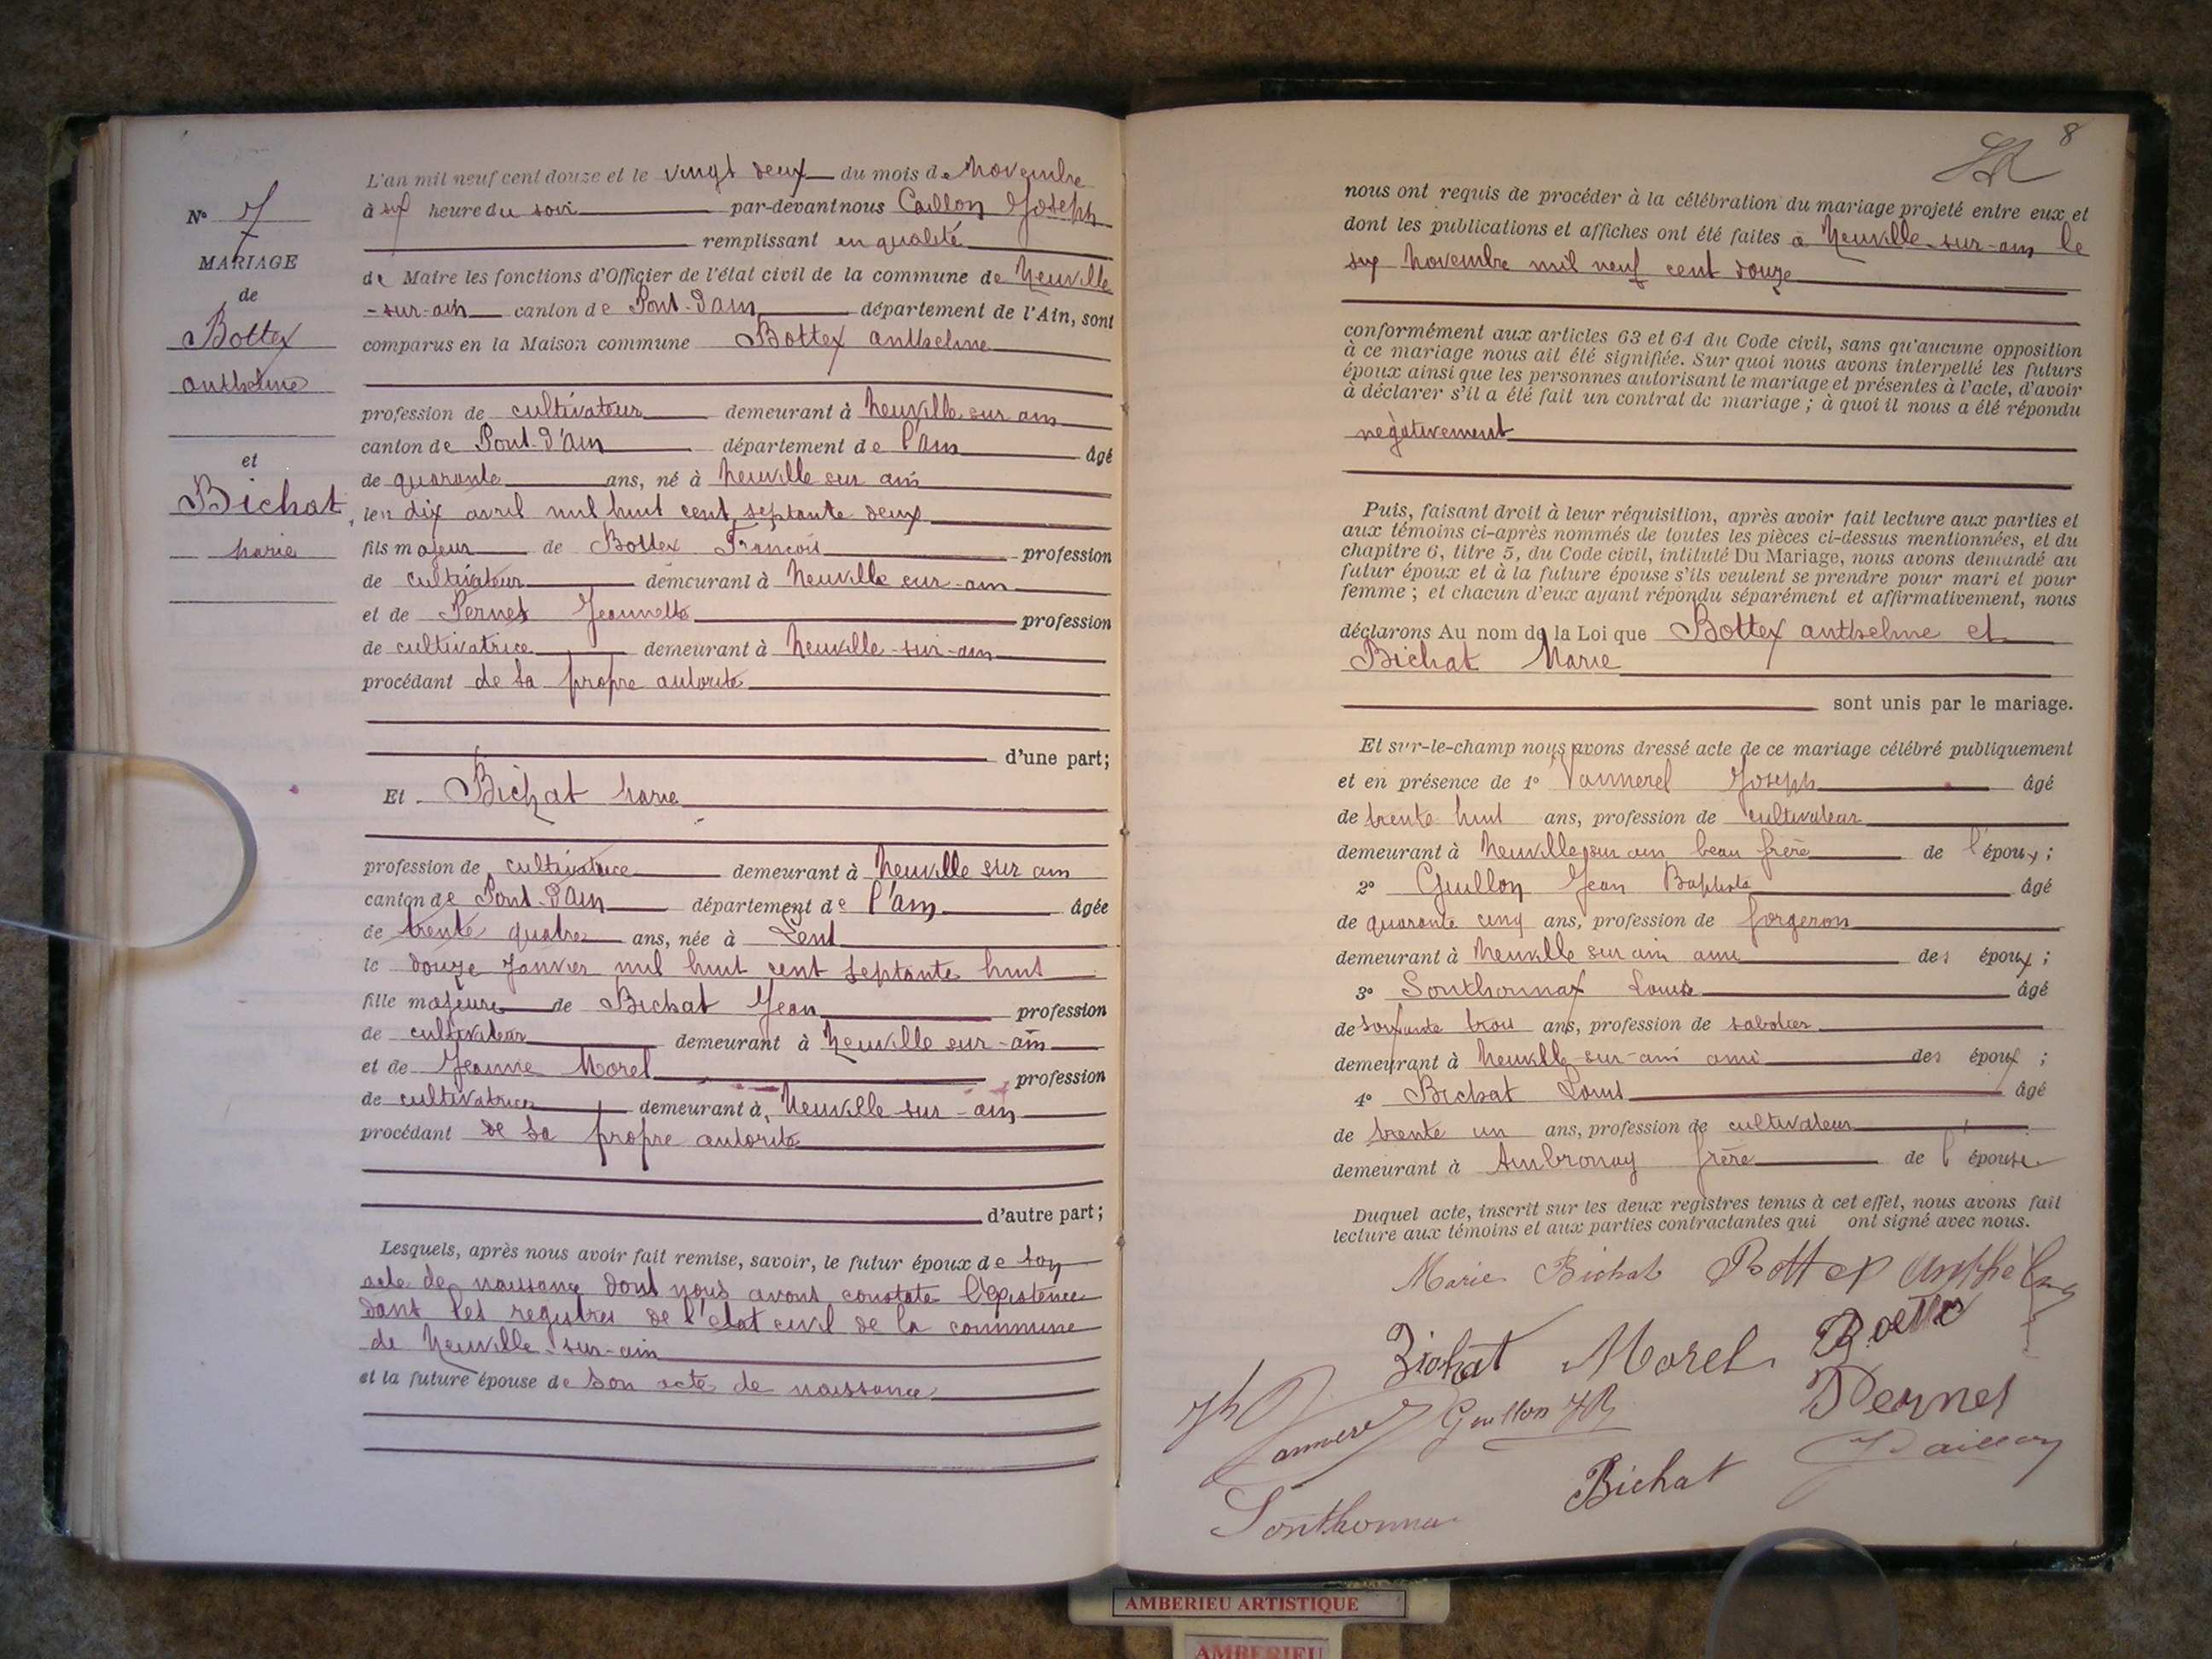 N° 7
MARIAGE
de
Bottex
anthelme
et
Bichat
Marie
L'an mil neuf cent douze et le vingt deux du mois de Novembre
à six heure du soir par-devant nous Caillon Joseph
remplissant en qualité
de Maire les fonctions d'Officier de l'état civil de la commune de Neuville
-sur-ain canton de Pont-d'ain département de l'Ain, sont
comparus en la Maison commune Bottex anthelme
profession de cultivateur demeurant à Neuville sur ain
canton de Pont-d'ain département de l'ain âgé
de quarante ans, né à Neuville sur ain
le dix avril mil huit cent septante deux
fils majeur de Bottex François profession
de cultivateur demeurant à Neuville sur-ain
et de Pernet Jeannette profession
de cultivatrice demeurant à Neuville-sur-ain
procédant de sa propre autorité
d'une part;
Et Bichat Marie
profession de cultivatrice demeurant à Neuville sur ain
canton de Pont-d'ain département de l'ain âgée
de trente quatre ans, née à Lent
le douze Janvier mil huit cent septante huit
fille majeure de Bichat Jean profession
de cultivateur demeurant à Neuville sur-ain
et de Jeanne Morel profession
de cultivatrice demeurant à Neuville-sur-ain
procédant de sa propre autorité
d'autre part;
Lesquels, après nous avoir fait remise, savoir, le futur époux de son
acte de naissance dont nous avons constaté l'existence
dans les registres de l'état civil de la commune
de Neuville-sur-ain
et la future épouse de son acte de naissance
8
nous ont requis de procéder à la célébration du mariage projeté entre eux et
dont les publications et affiches ont été faites à Neuville-sur-ain le
six Novembre mil neuf cent douze
conformément aux articles 63 et 64 du Code civil, sans qu'aucune opposition
à ce mariage nous ait été signifiée. Sur quoi nous avons interpellé les futurs
époux ainsi que les personnes autorisant le mariage et présentes à l'acte, d'avoir
à déclarer s'il a été fait un contrat de mariage; à quoi il nous a été répondu
négativement
Puis, faisant droit à leur réquisition, après avoir fait lecture aux parties et
aux témoins ci-après nommés de toutes les pièces ci-dessus mentionnées, et du
chapitre 6, titre 5, du Code civil, intitulé Du Mariage, nous avons demandé au
futur époux et à la future épouse s'ils veulent se prendre pour mari et pour
femme; et chacun d'eux ayant répondu séparément et affirmativement, nous
déclarons Au nom de la Loi que Bottex anthelme et
Bichat Marie
sont unis par le mariage.
Et sur-le-champ nous avons dressé acte de ce mariage célébré publiquement
et en présence de 1° Vannerel Joseph âgé
de trente huit ans, profession de cultivateur
demeurant à Neuville sur ain beau frère de l'époux;
2° Guillon Jean Baptiste âgé
de quarante cinq ans, profession de forgeron
demeurant à Neuville sur ain ami des époux;
3° Sonthonnax Louis âgé
de soixante trois ans, profession de sabotier
demeurant à Neuville-sur-ain ami des époux;
4° Bichat Louis âgé
de trente un ans, profession de cultivateur
demeurant à Ambronay frère de l'épouse
Duquel acte, inscrit sur les deux registres tenus à cet effet, nous avons fait
lecture aux témoins et aux parties contractantes qui ont signé avec nous.
Marie Bichat Bottex Anthelme
Bichat Morel Bottex
Jh Vannerel Guillon JB Pernet
Caillon
Sonthonnax Bichat
AMBERIEU ARTISTIQUE
AMBERIEU